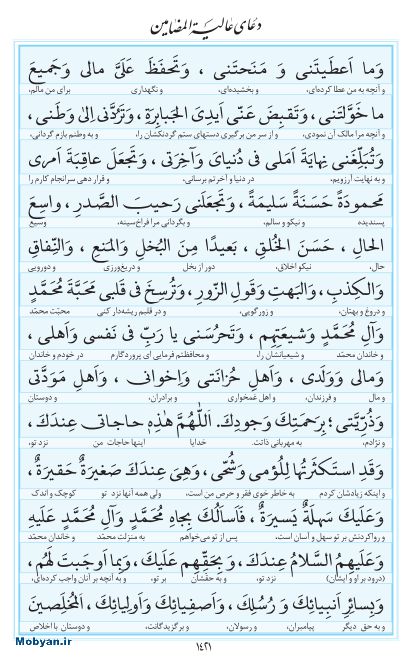 دعای عالیة المضامین
وَما اَعطَیتَنی وَ مَنَحتَنی ، وَتَحفَظَ عَلَیَّ مالی وَجَمیعَ
و آنچه به من عطا کرده‌ای، و بخشیده‌ای، و نگهداری برای من مالم،
ما خَوَّلتَنی، وَتَقبِضَ عَنّی اَیدِیَ الجَبابِرَةِ، وَتَرُدَّنی اِلیٰ وَطَنی،
و آنچه مرا مالک آن نمودی، و از سر من برگیری دستهای ستم گردنکشان را، و به وطنم بازم گردانی،
وَتُبَلِّغَنی نِهایَةَ اَمَلی فی دُنیایَ وَآخِرَتی، وَتَجعَلَ عاقِبَةَ اَمری
و به نهایت آرزویم، در دنیا و آخرتم برسانی، و قرار دهی سرانجام کارم را
مَحمودَةً حَسَنَةً سَلیمَةً، وَتَجعَلَنی رَحیبَ الصَّدرِ، واسِعَ
پسندیده نیکو و سالم، و بگردانی مرا فراخ‌سینه، وسیع
الحالِ، حَسَنَ الخُلقِ، بَعیدًا مِنَ البُخلِ وَالمَنعِ، وَالنِّفاقِ
حال، نیکو اخلاق، دور از بخل و دریغ‌ورزی و دورویی
وَالکِذبِ، وَالبَهتِ وَقَولِ الزّورِ، وَتُرسِخَ فی قَلبی مَحَبَّةَ مُحَمَّدٍ
و دروغ و بهتان، و زورگویی، و در قلبم ریشه‌دار کنی محبّت محمّد
وَآلِ مُحَمَّدٍ وَشیعَتِهِم، وَتَحرُسَنی یا رَبِّ فی نَفسی وَاَهلی،
و خاندان محمّد و شیعیانشان را، و محافظتم فرمایی ای پروردگارم در خودم و خاندان
وَمالی وَوَلَدی، وَاَهلِ حُزانَتی وَاِخوانی، وَاَهلِ مَوَدَّتی
و مال و فرزندان، و اهل غمخواری و برادران، و دوستان
وَذُرِّیَّتی؛ بِرَحمَتِكَ وَجودِكَ. اَللّٰهُمَّ هٰذِهِ حاجاتی عِندَكَ،
و نژادم، به مهربانی ذاتت. خدایا اینها حاجات من نزد تو،
وَقَدِ استَکثَرتُها لِلُؤمی وَشُحّی، وَهِیَ عِندَكَ صَغیرَةٌ حَقیرَةٌ،
و اینکه زیادشان کردم به خاطر خوی فقر و حرص من است، ولی همه آنها نزد تو کوچک و اندک
وَعَلَیكَ سَهلَةٌ یَسیرَةٌ، فَاَسأَلُكَ بِجاهِ مُحَمَّدٍ وَآلِ مُحَمَّدٍ عَلَیهِ
و رواکردنش بر تو سهل و آسان است. پس از تو می‌خواهم به منزلت محمّد و خاندان محمّد
وَعَلَیهِمُ السَّلامُ عِندَكَ، وَ بِحَقِّهِم عَلَیكَ، وَبِما اَوجَبتَ لَهُم،
(درود بر او و ایشان) نزد تو، و به حقّشان بر تو، و به آنچه بر آنان واجب کرده‌ای،
وَبِسائِرِ اَنبِیائِكَ وَ رُسُلِكَ، وَاَصفِیائِكَ وَاَولِیائِكَ، المُخلِصینَ
و به حق دیگر پیامبران، و رسولان، و برگزیدگانت، و دوستان با اخلاص
۱۴۲۱
Mobyan.ir